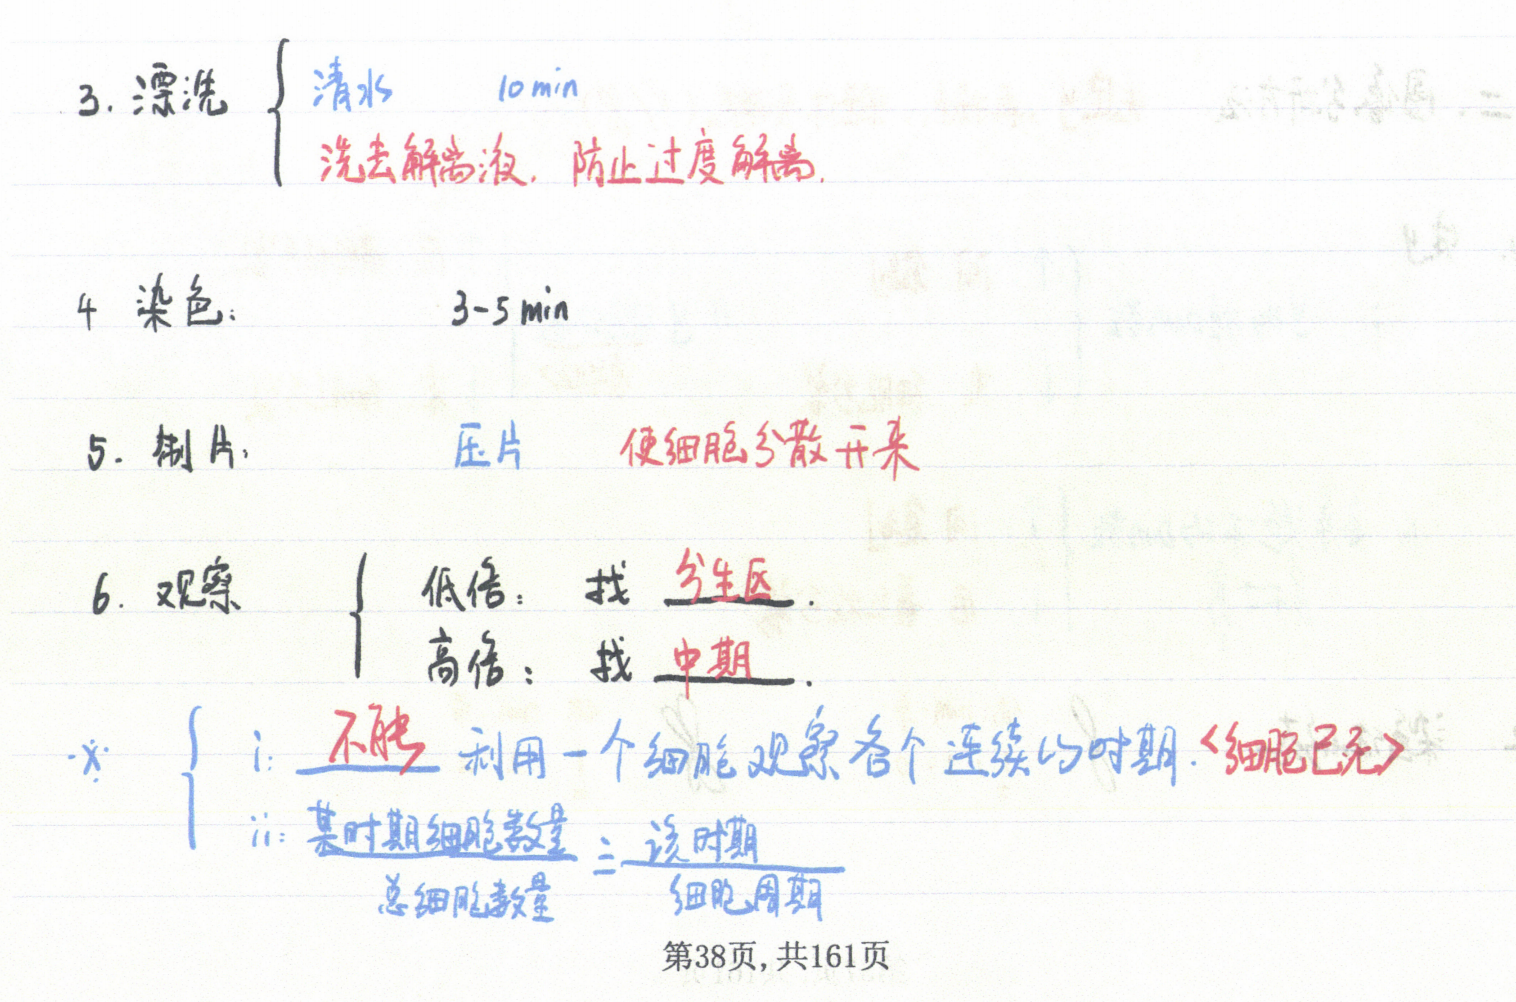 3. 漂洗 { 清水 10min
洗去解离液. 防止过度解离.
4 染色: 3-5min
5. 制片: 压片 使细胞分散开来
6. 观察 { 低倍: 找 分生区.
高倍: 找 中期.
※ { i: 不能 利用一个细胞观察各个连续的时期.<细胞已死>
ii: 某时期细胞数量/总细胞数量 = 该时期/细胞周期
第38页,共161页